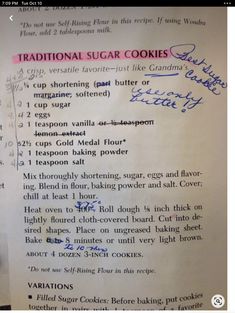 7:09 PM Tue Oct 10
ABOUT 2 DOZEN
*Do not use Self-Rising Flour in this recipe. If using Wondra
Flour, add 2 tablespoons milk.
TRADITIONAL SUGAR COOKIES
Best Sugar
Cookie
A crisp, versatile favorite—just like Grandma's
¾ cup shortening (part butter or
margarine, softened)
use only
butter!
4 2 1 cup sugar
4 2 eggs
4 2 1 teaspoon vanilla or ½ teaspoon
lemon extract
10 5 2½ cups Gold Medal Flour*
4 2 1 teaspoon baking powder
4 2 1 teaspoon salt
Mix thoroughly shortening, sugar, eggs and flavor-
ing. Blend in flour, baking powder and salt. Cover;
chill at least 1 hour.
375°
Heat oven to 400°. Roll dough ⅛ inch thick on
lightly floured cloth-covered board. Cut into de-
sired shapes. Place on ungreased baking sheet.
Bake 6 to 8 minutes or until very light brown.
to 10
ABOUT 4 DOZEN 3-INCH COOKIES.
*Do not use Self-Rising Flour in this recipe.
VARIATIONS
• Filled Sugar Cookies: Before baking, put cookies
together in pairs with
a favorite